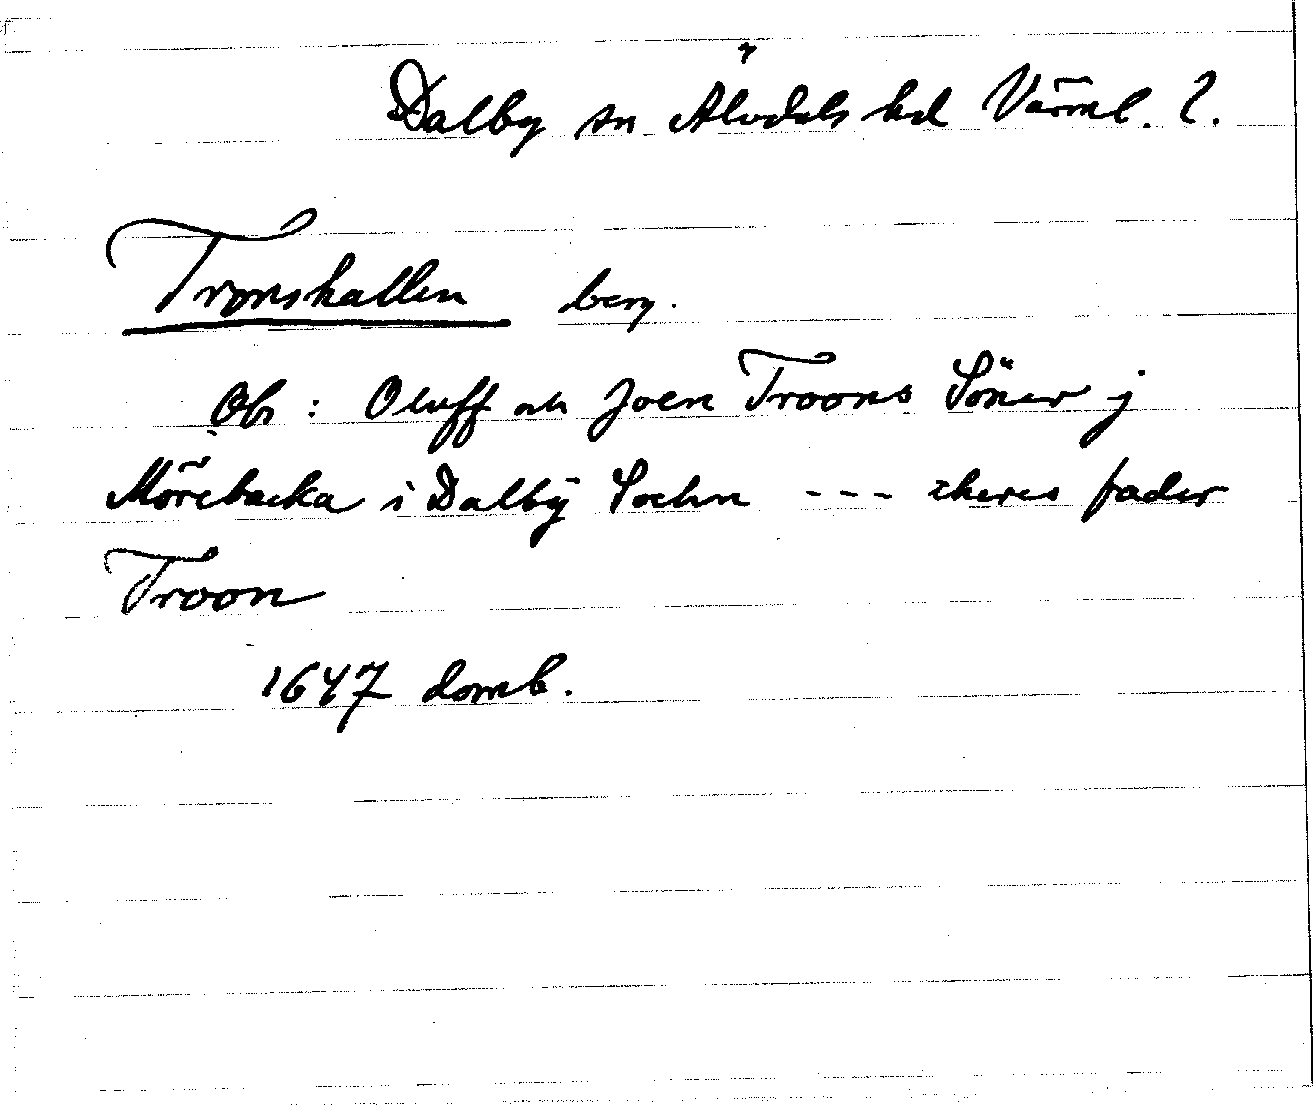 Dalby sn Älvdals hd Värml. l.
Tronshallen berg.
Obs: Oluff och Joen Troons Söner j
Mörebacka i Dalbÿ Sochn --- theres fader
Troon
1647 domb.